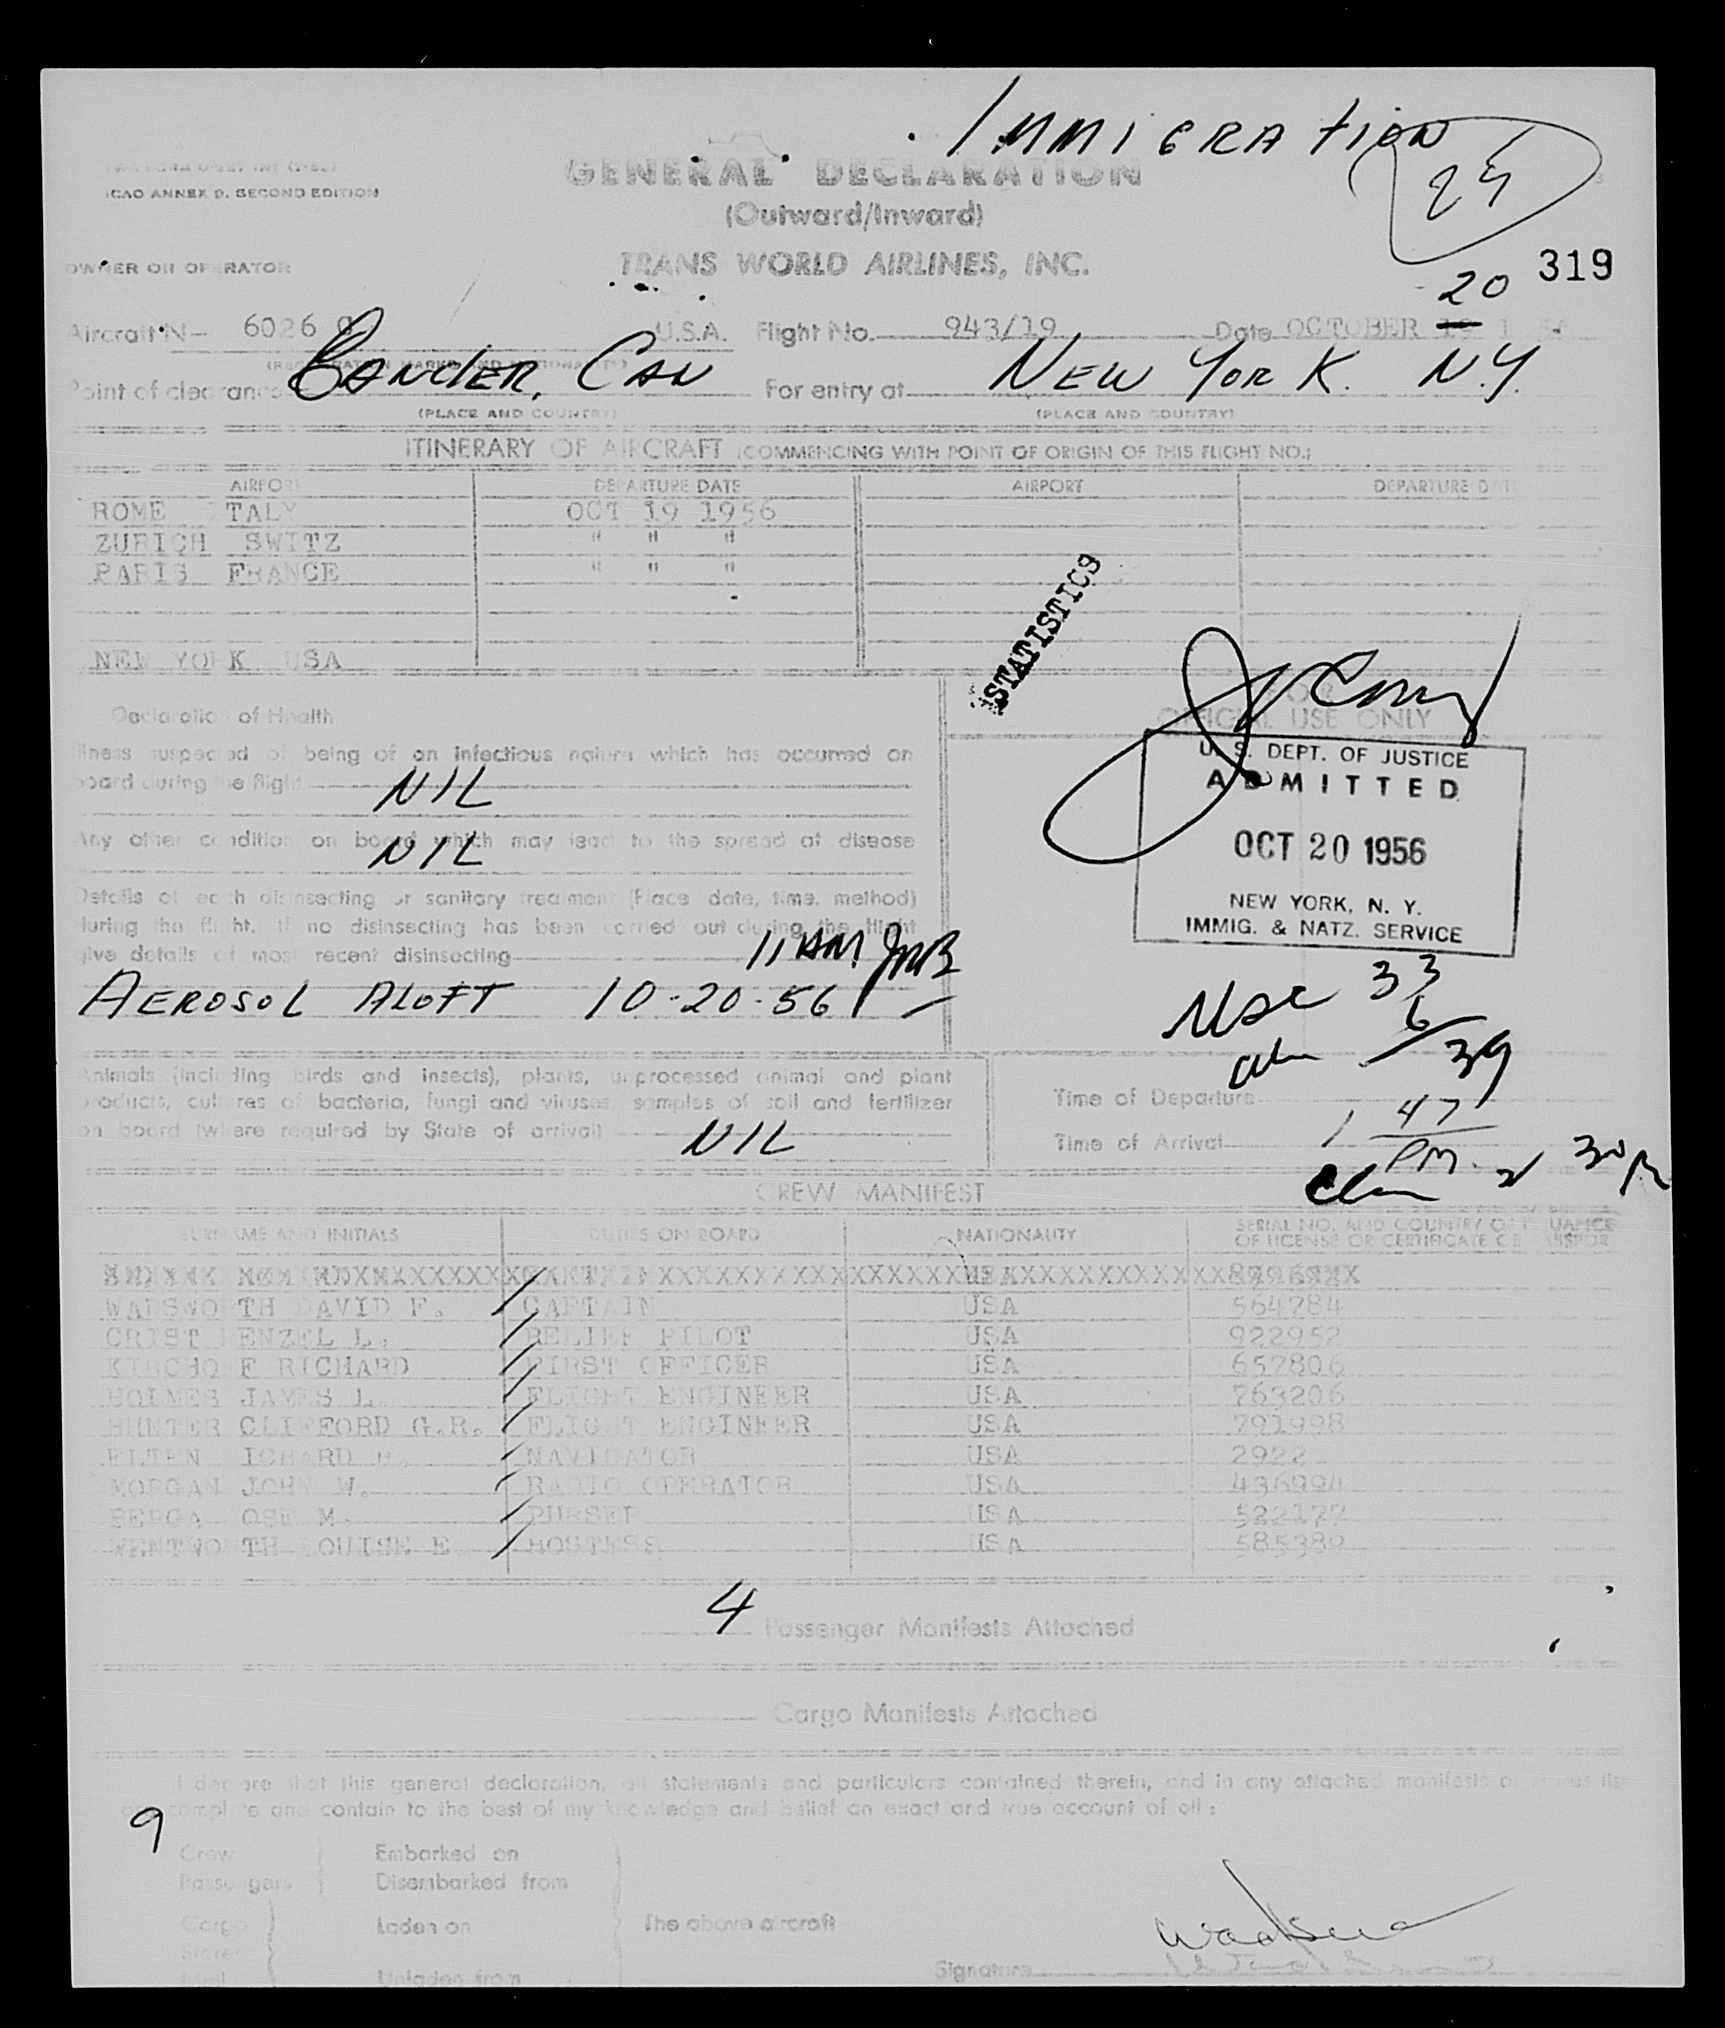 IMMIGRATION
ICAO ANNEX 9, SECOND EDITION
GENERAL DECLARATION
24
(Outward/Inward)
OWNER OR OPERATOR
TRANS WORLD AIRLINES, INC.
20
319
Aircraft N- 6026 C U.S.A. Flight No. 943/19 Date OCTOBER 19
(REGISTRATION MARKS AND NATIONALITY)
Point of clearance GANDER, CAN For entry at NEW YORK. N.Y.
(PLACE AND COUNTRY) (PLACE AND COUNTRY)
ITINERARY OF AIRCRAFT (COMMENCING WITH POINT OF ORIGIN OF THIS FLIGHT NO.)
AIRPORT DEPARTURE DATE AIRPORT DEPARTURE DATE
ROME ITALY OCT 19 1956
ZURICH SWITZ " " "
PARIS FRANCE " " "
NEW YORK USA
STATISTICS
Declaration of Health
FOR
OFFICIAL USE ONLY
Illness suspected of being of an infectious nature which has occurred on
board during the flight NIL
Any other condition on board which may lead to the spread of disease
NIL
Details of each disinsecting or sanitary treatment (Place date, time, method)
during the flight. If no disinsecting has been carried out during the flight
give details of most recent disinsecting 11 AM. JMB
AEROSOL ALOFT 10-20-56
U. S. DEPT. OF JUSTICE
ADMITTED
OCT 20 1956
NEW YORK, N. Y.
IMMIG. & NATZ. SERVICE
USC 33
6
39
Animals (including birds and insects), plants, unprocessed animal and plant
products, cultures of bacteria, fungi and viruses, samples of soil and fertilizer
on board (where required by State of arrival) NIL
Time of Departure
Time of Arrival 1 47 PM.
CREW MANIFEST
SURNAME AND INITIALS DUTIES ON BOARD NATIONALITY SERIAL NO. AND COUNTRY OF ISSUANCE
OF LICENSE OR CERTIFICATE OR PASSPORT
WADSWORTH DAVID F. CAPTAIN USA 564784
CRIST DENZEL L. RELIEF PILOT USA 922952
KIRCHOFF RICHARD FIRST OFFICER USA 657806
HOLMES JAMES L. FLIGHT ENGINEER USA 763206
HUNTER CLIFFORD G.R. FLIGHT ENGINEER USA 791998
RICHARD NAVIGATOR USA 2922
MORGAN JOHN W. RADIO OPERATOR USA 436994
BERGA JOSE M. PURSER USA 522177
WENTWORTH LOUISE E HOSTESS USA 585389
4 Passenger Manifests Attached
Cargo Manifests Attached
I declare that this general declaration, all statements and particulars contained therein, and in any attached manifests
complete and contain to the best of my knowledge and belief an exact and true account of all:
9
Crew Embarked on
Passengers Disembarked from
Cargo Laden on The above aircraft
Stores
Mail Unladen from
Signature